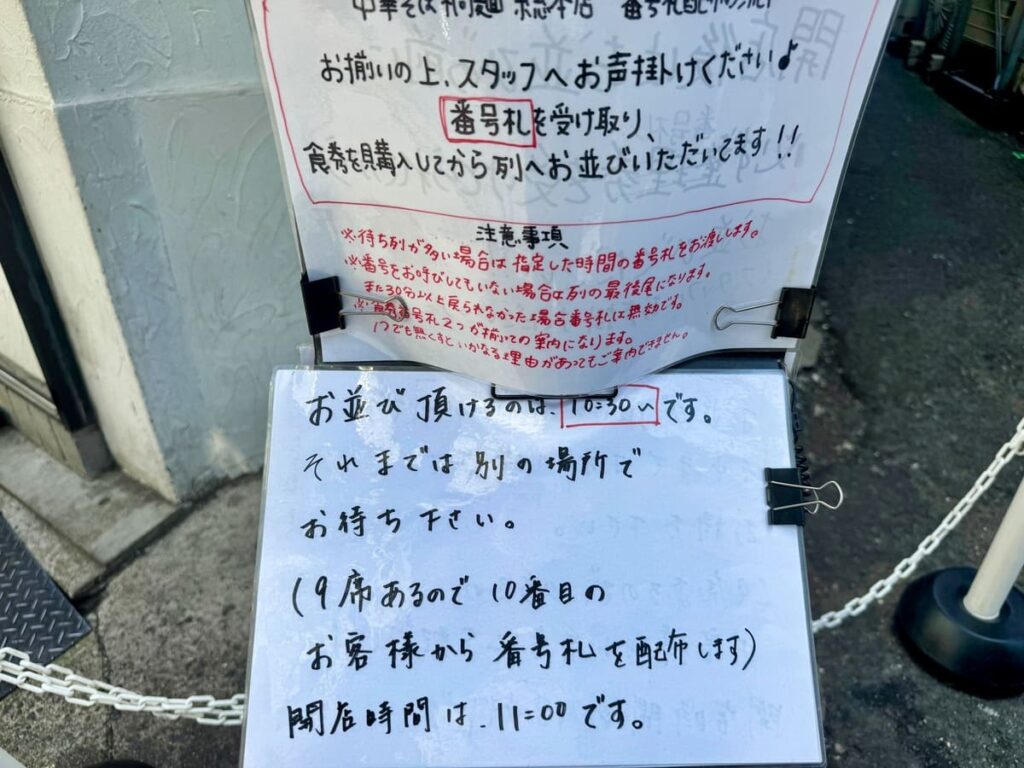 中華そば 総本店 番号札配布の流れ
お揃いの上、スタッフへお声掛けください♪
番号札を受け取り、
食券を購入してから列へお並びいただいてます!!
注意事項
※待ち列が多い場合は指定した時間の番号札をお渡しします。
※番号をお呼びしてもいない場合は列の最後尾になります。
また30分以上戻られなかった場合番号札は無効です。
※食券番号札2つが揃っての案内になります。
1つでも無くすといかなる理由があってもご案内できません。
お並び頂けるのは、10:30〜です。
それまでは別の場所で
お待ち下さい。
(9席あるので10番目の
お客様から番号札を配布します)
開店時間は、11:00です。